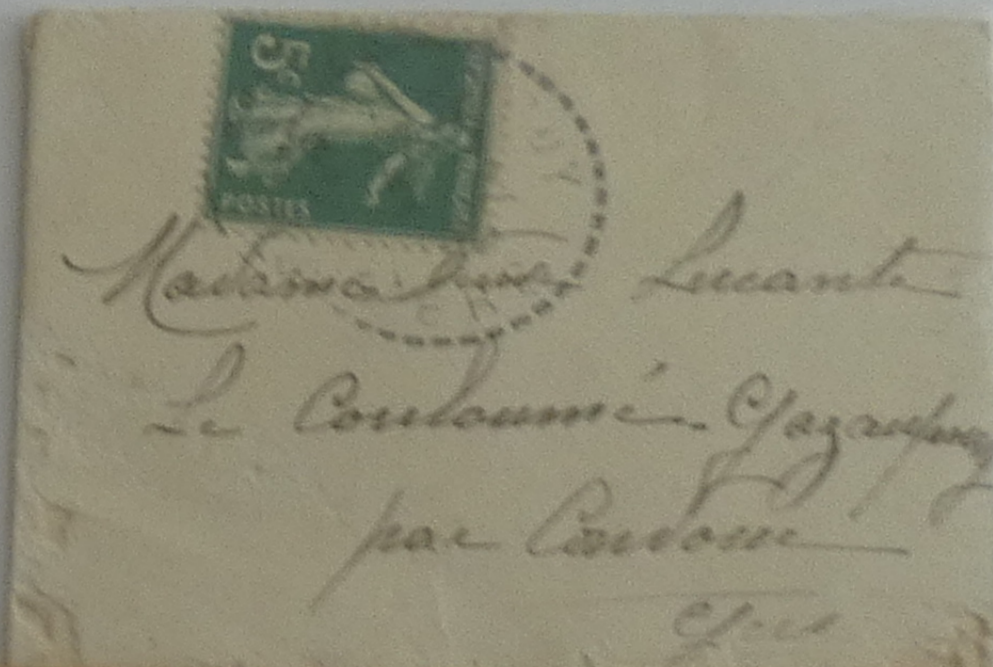 5c
POSTES
Madame Lucante
Le Couloumé Gazaupouy
par Condom
Gers